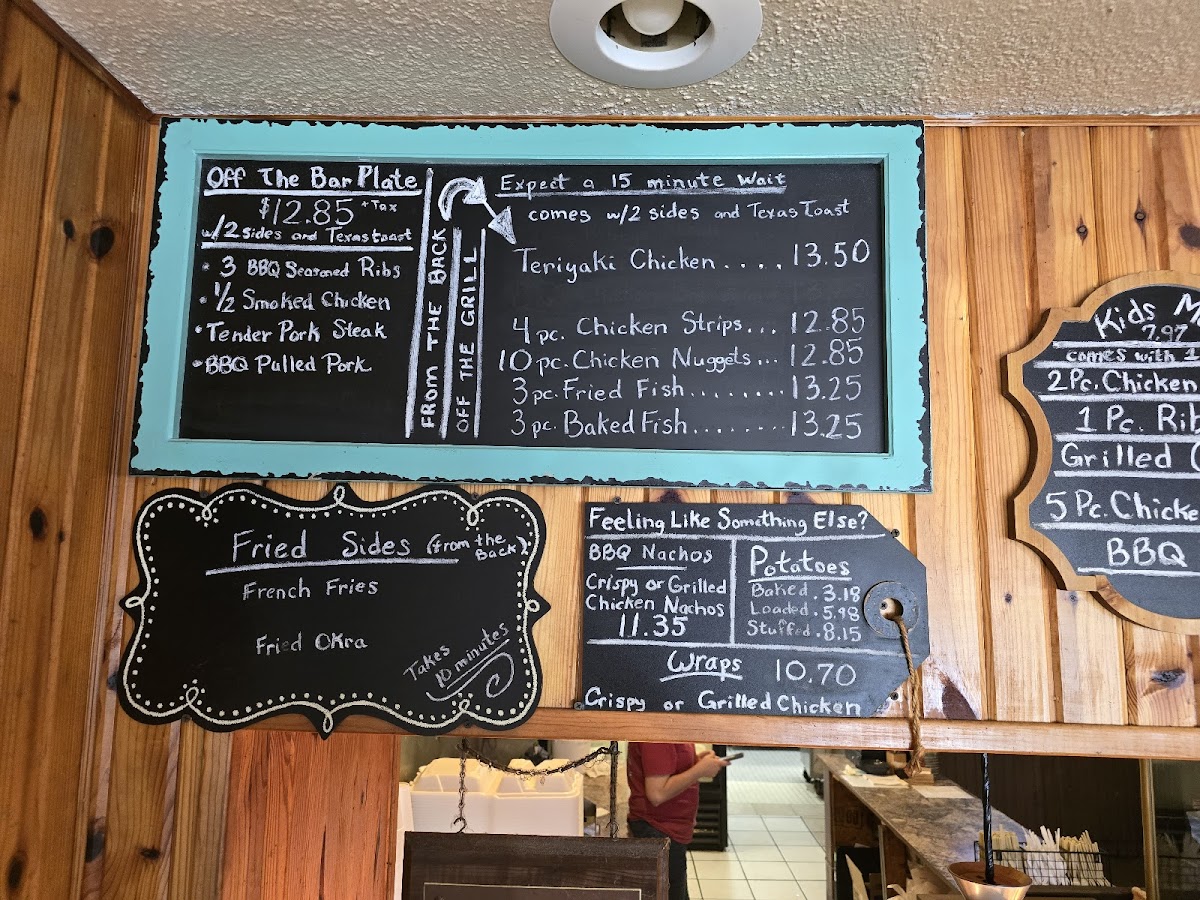 Off The Bar Plate
$12.85 + Tax
w/2 sides and Texas toast
• 3 BBQ Seasoned Ribs
• 1/2 Smoked Chicken
• Tender Pork Steak
• BBQ Pulled Pork
FROM THE BACK
OFF THE GRILL
Expect a 15 minute Wait
comes w/2 sides and Texas Toast
Teriyaki Chicken.... 13.50
4 pc. Chicken Strips... 12.85
10 pc. Chicken Nuggets... 12.85
3 pc. Fried Fish......... 13.25
3 pc. Baked Fish........ 13.25
Kids M
7.97
comes with 1
2 Pc. Chicken
1 Pc. Rib
Grilled
5 Pc. Chicke
BBQ
Fried Sides (from the Back)
French Fries
Fried Okra
Takes
10 minutes
Feeling Like Something Else?
BBQ Nachos
Crispy or Grilled
Chicken Nachos
11.35
Potatoes
Baked . 3.18
Loaded . 5.98
Stuffed . 8.15
Wraps 10.70
Crispy or Grilled Chicken